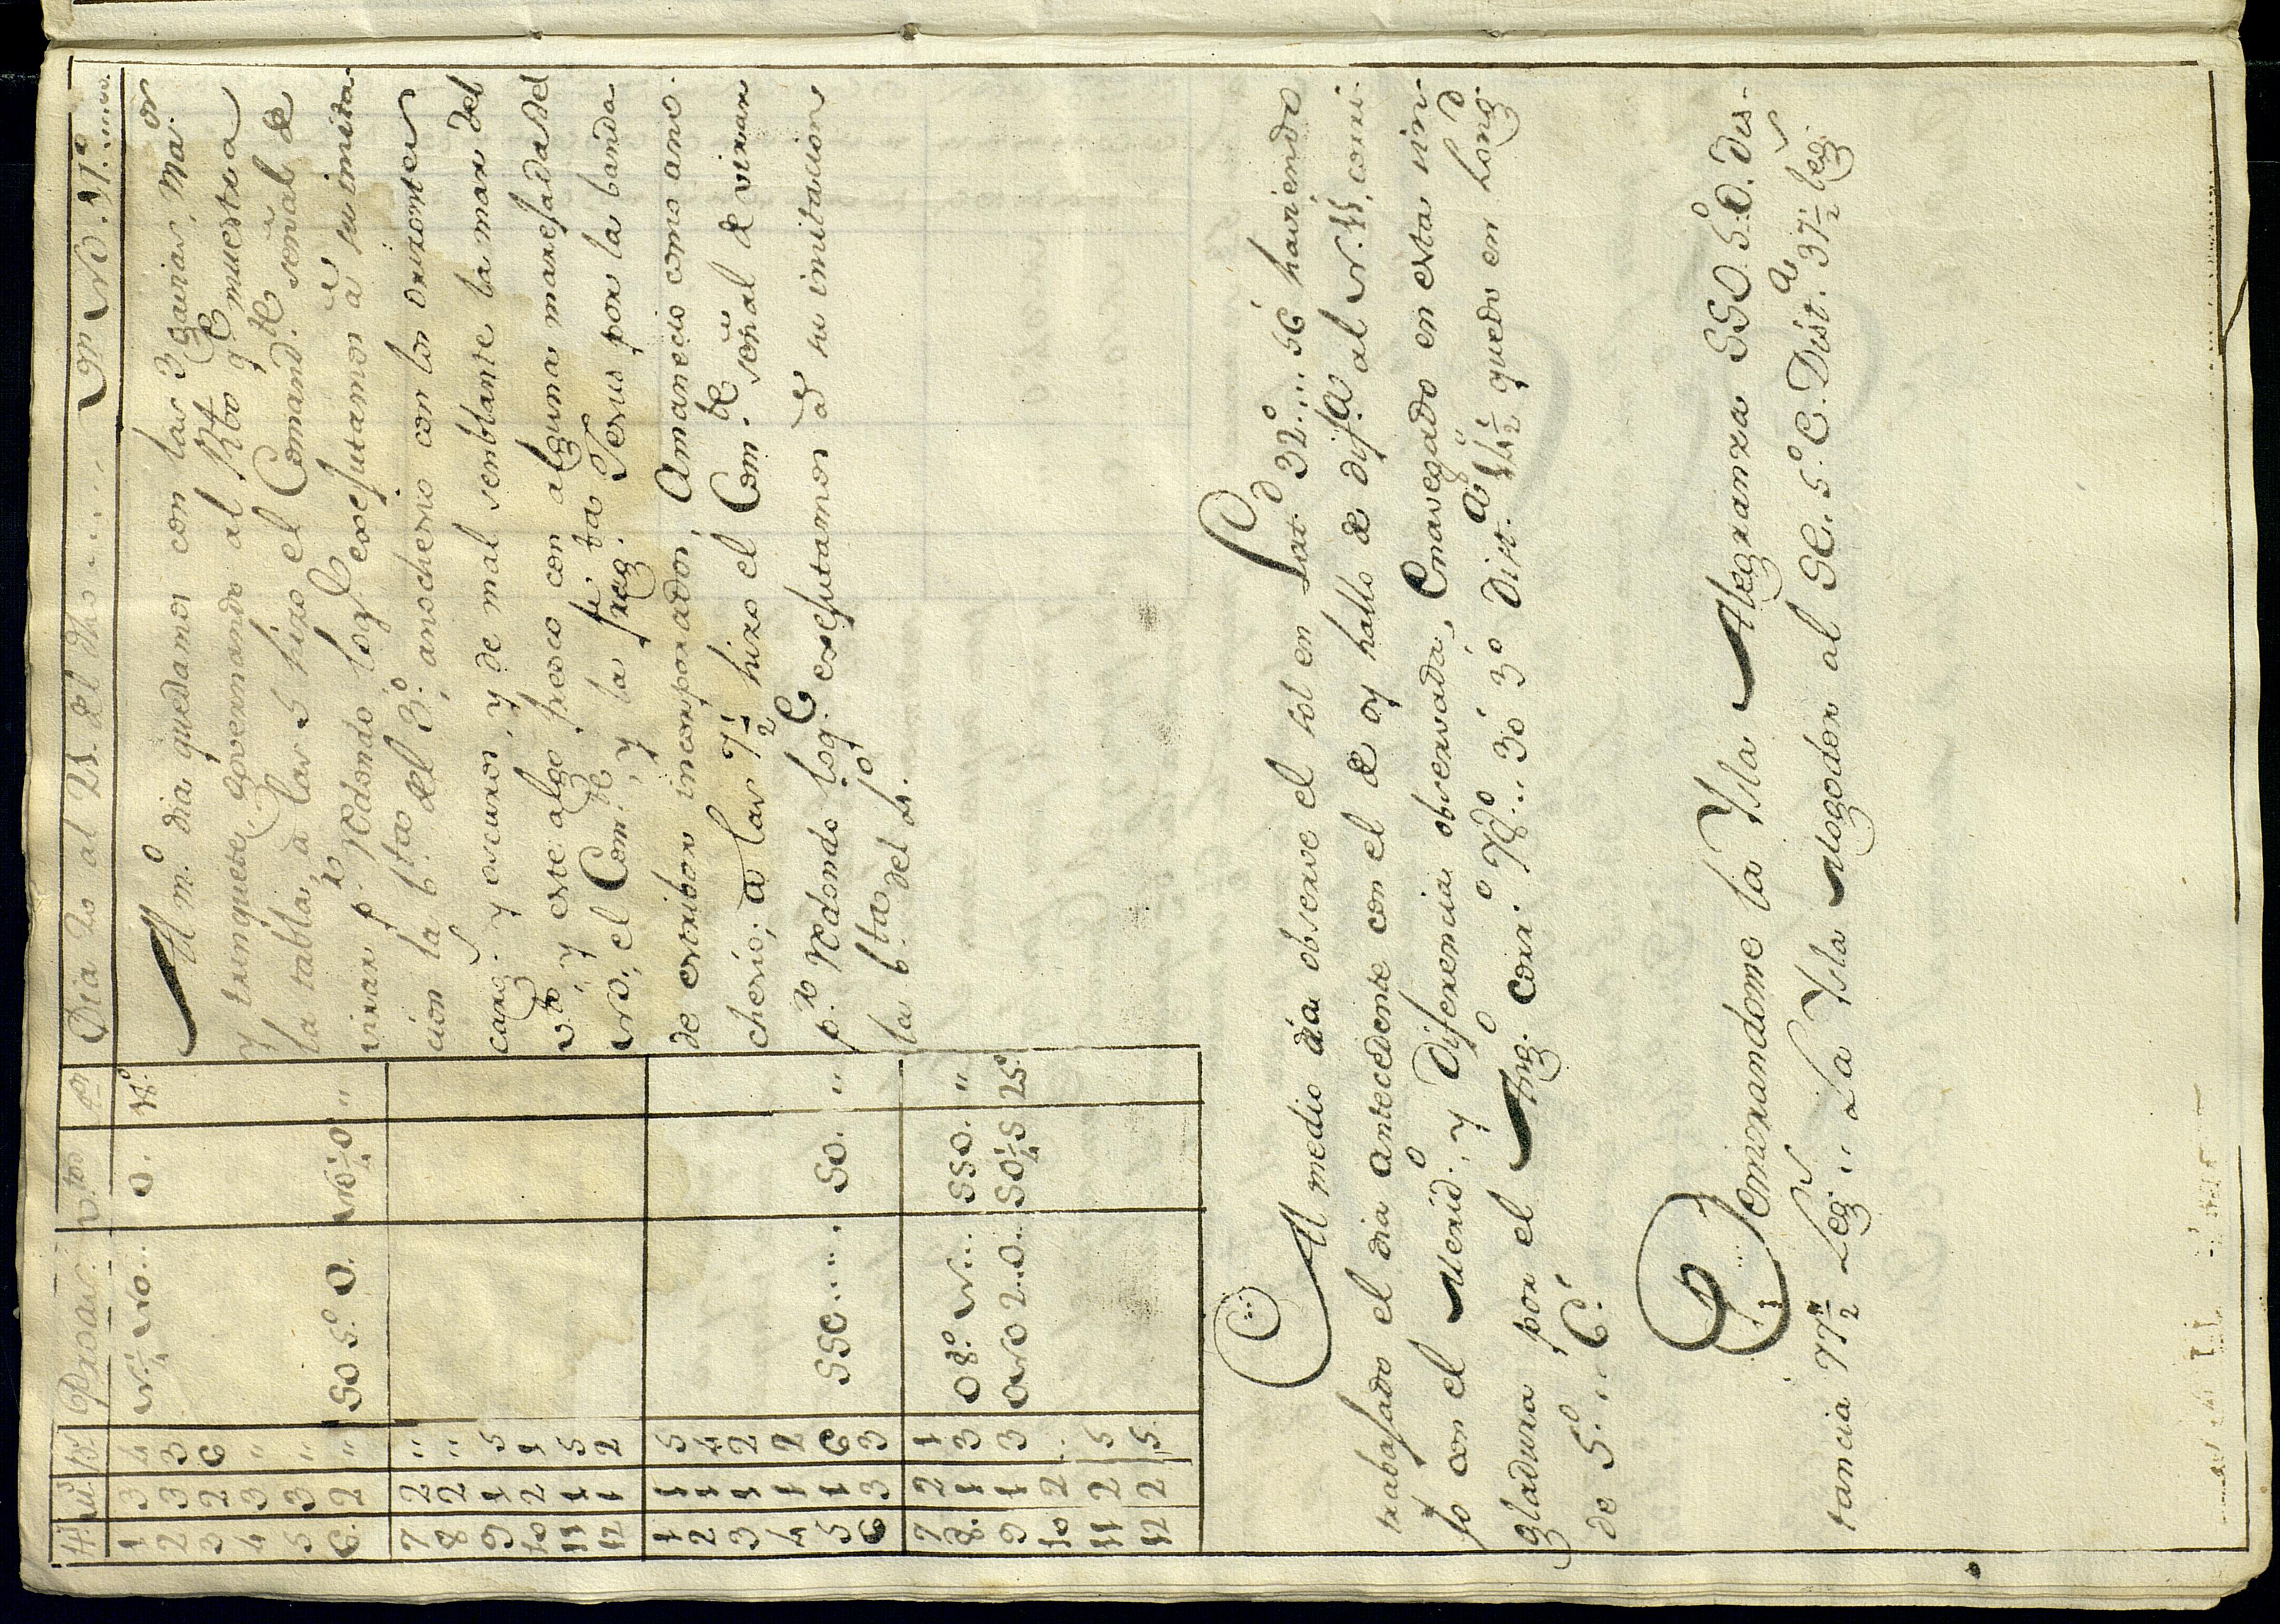 H. M. B. Proas. V.tos V.on Dia 20 al 21 del dho ..... en No. 31º.....
1 3 4 N.¼ NO... O. 18º
2 3 3
3 2 6
4 3 "
5 3 "
6 2 " SO 5º O. NO¼O "
7 2 "
8 2 "
9 1 5
10 2 1
11 1 5
12 1 2
1 1 5
2 1 4
3 1 2
4 1 2
5 1 6 SSO..... SO. "
6 3 3
7 2 1
8 1 3 O 8º N... SSO. "
9 1 3 ONO 2º O... SO¼S 25º
10 2 ..
11 2 5
12 2 5
Al m.º dia quedamos con las 3 gavias, Ma.or
y trinquete governando al Rbo q.e muestra
la tabla, a las 5 hizo el Comand.te señal de
virar p.r redondo loq.e exesutamos à su imita
cion la b.ta del 3.º, anochesio con los orizontes
carg.s y oscuros, y de mal senblante la mar del
v.to, y este algo fresco con alguna maresada del
NO, el Com.te, y la frag.ta Venus por la banda
de estribor incorporados, Amanecio como ano
chesio; a las 7½ hizo el Com.te señal de virar
p.r redondo loq.e exesutamos à su imitacion
la b.ta del 4.º
Al medio dia observe el sol en Lat.d 32º... 56' haviendo
trabasado el dia antecedente con el de oy hallo de dif.a al N. 11', comi
so con el Merid.º, y Diferencia observada, E navegado en esta sin
gladura por el Ang.º corr.º 78º... 30' 3º Dist.a 44½ quedo en Long.d
de 5º... 6'.
Demorandome la Ysla Alegranza SSO. 5º O. dis-
tancia 77½ Leg.s .. La Ysla Mogodor al SE. 5º E. Dist.a 37½ leg.s